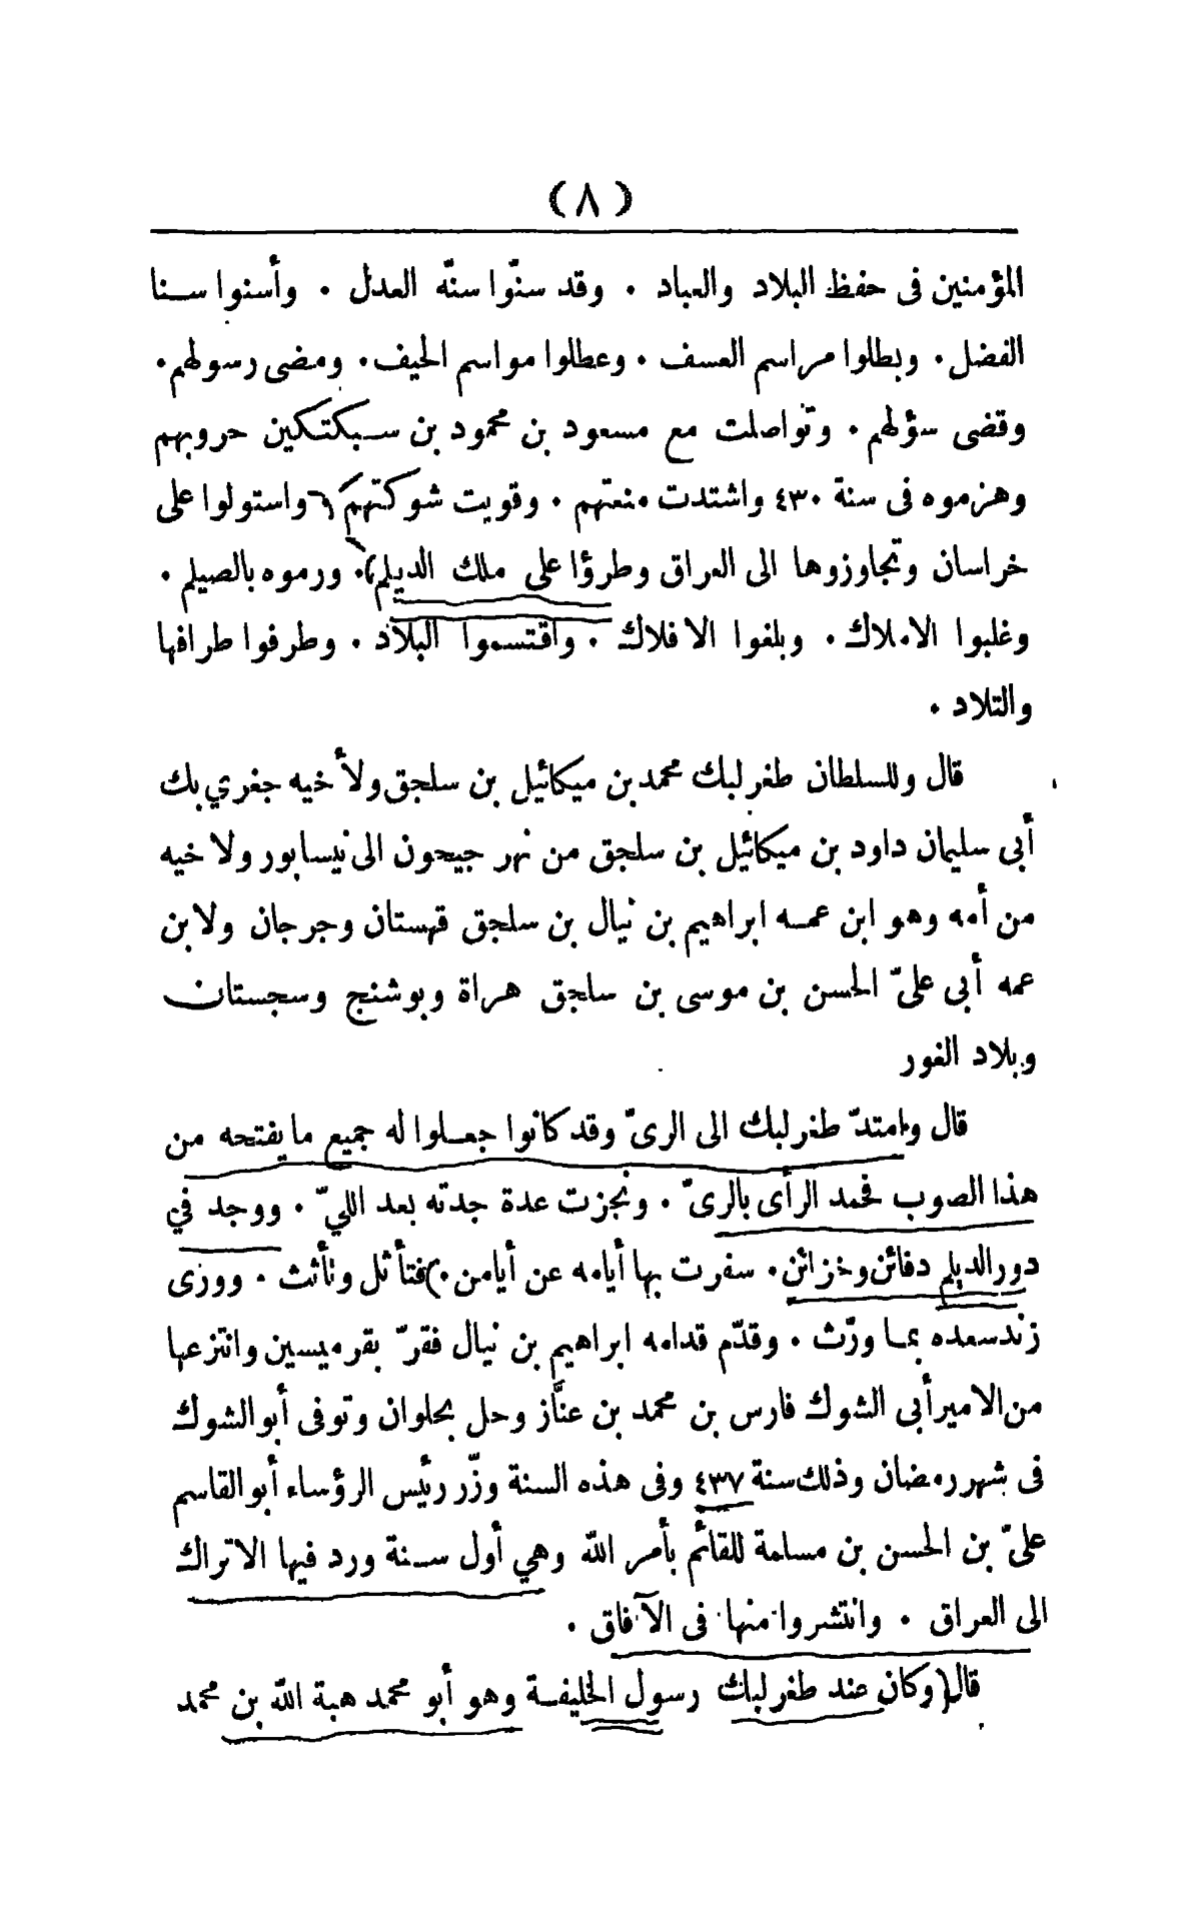 (٨)
المؤمنين فى حفظ البلاد والعباد ٠ وقد سنّوا سنّه العدل ٠ وأسنوا سنا
الفضل ٠ وبطلوا مراسم العسف ٠ وعطلوا مواسم الحيف ٠ ومضى رسولهم ٠
وقضى سؤلهم ٠ وتواصلت مع مسعود بن محمود بن سبكتكين حروبهم
وهزموه فى سنة ٤٣٠ واشتدت منعتهم ٠ وقويت شوكتهم واستولوا على
خراسان وتجاوزوها الى العراق وطرؤا على ملك الديلم ٠ ورموه بالصيلم ٠
وغلبوا الاملاك ٠ وبلغوا الافلاك ٠ واقتسموا البلاد ٠ وطرفوا طرافها
والتلاد ٠
قال وللسلطان طغرلبك محمد بن ميكائيل بن سلجق ولأخيه جغري بك
أبى سليمان داود بن ميكائيل بن سلجق من نهر جيحون الى نيسابور ولاخيه
من أمه وهو ابن عمه ابراهيم بن نيال بن سلجق قهستان وجرجان ولابن
عمه أبى علىّ الحسن بن موسى بن سلجق هراة وبوشنج وسجستان
وبلاد الغور
قال وامتدّ طغرلبك الى الرىّ وقد كانوا جعلوا له جميع ما يفتحه من
هذا الصوب فحمد الرأى بالرىّ ٠ ونجزت عدة جدته بعد الليّ ٠ ووجد في
دور الديلم دفائن وخزائن ٠ سفرت بها أيامه عن أيامن ٠ فتأثل وتأثث ٠ وورى
زند سعده بما ورّث ٠ وقدّم قدامه ابراهيم بن نيال فقرّ بقرميسين وانتزعها
من الامير أبى الشوك فارس بن محمد بن عنّاز وحل بحلوان وتوفى أبو الشوك
فى شهر رمضان وذلك سنة ٤٣٧ وفى هذه السنة وزّر رئيس الرؤساء أبو القاسم
علىّ بن الحسن بن مسلمة للقائم بأمر الله وهي أول سنة ورد فيها الاتراك
الى العراق ٠ وانتشروا منها فى الآفاق ٠
قال وكان عند طغرلبك رسول الخليفة وهو أبو محمد هبة الله بن محمد